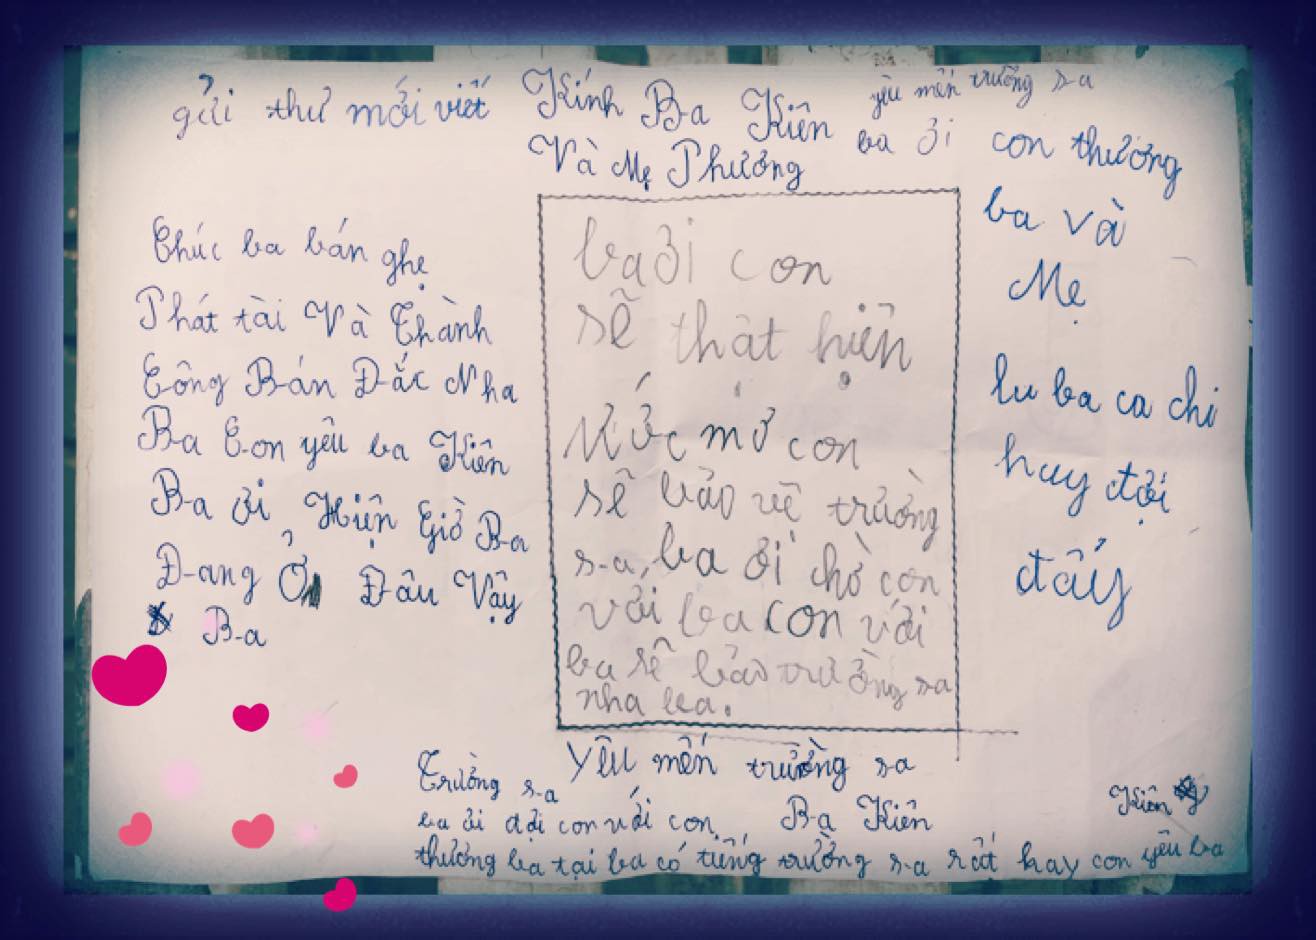 gửi thư mới viết
Kính Ba Kiên
Và Mẹ Phưởng
yêu mến trường sa
ba ơi con thương
ba Và
Mẹ
lu ba ca chi
huy đợi
đấy
Chúc ba bán ghẹ
Phát tài Và Thành
Công Bán Đắc Nha
Ba Con yêu ba Kiên
Ba ơi Hiện Giờ Ba
Đang Ở Đâu Vậy
Ba
ba ơi con
sẽ thật hiện
Ước mơ con
sẽ bảo vệ trường
sa, ba ơi chờ con
với ba con với
ba sẽ bảo trường sa
nha ba.
Yêu mến trường sa
Trường sa
ba ơi đợi con với con Ba Kiên
Kiên
thương ba tại ba có tiếng trường sa rất hay con yêu ba